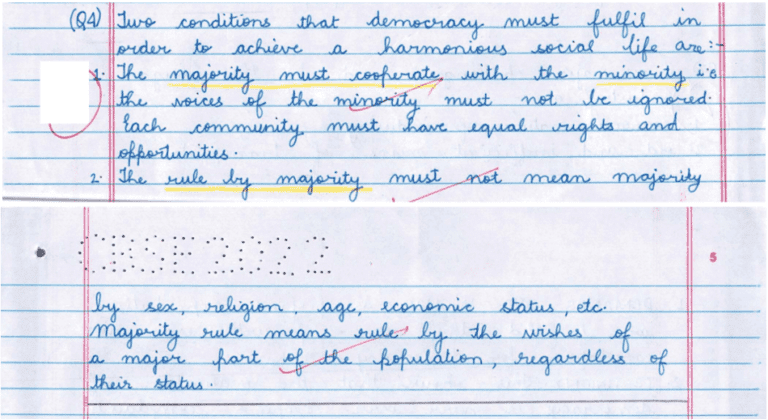 (Q4) Two conditions that democracy must fulfil in
order to achieve a harmonious social life are:-
1. The majority must cooperate with the minority i.e
the voices of the minority must not be ignored.
Each community must have equal rights and
opportunities.
2. The rule by majority must not mean majority
CBSE2022
5
by sex, religion, age, economic status, etc.
Majority rule means rule by the wishes of
a major part of the population, regardless of
their status.